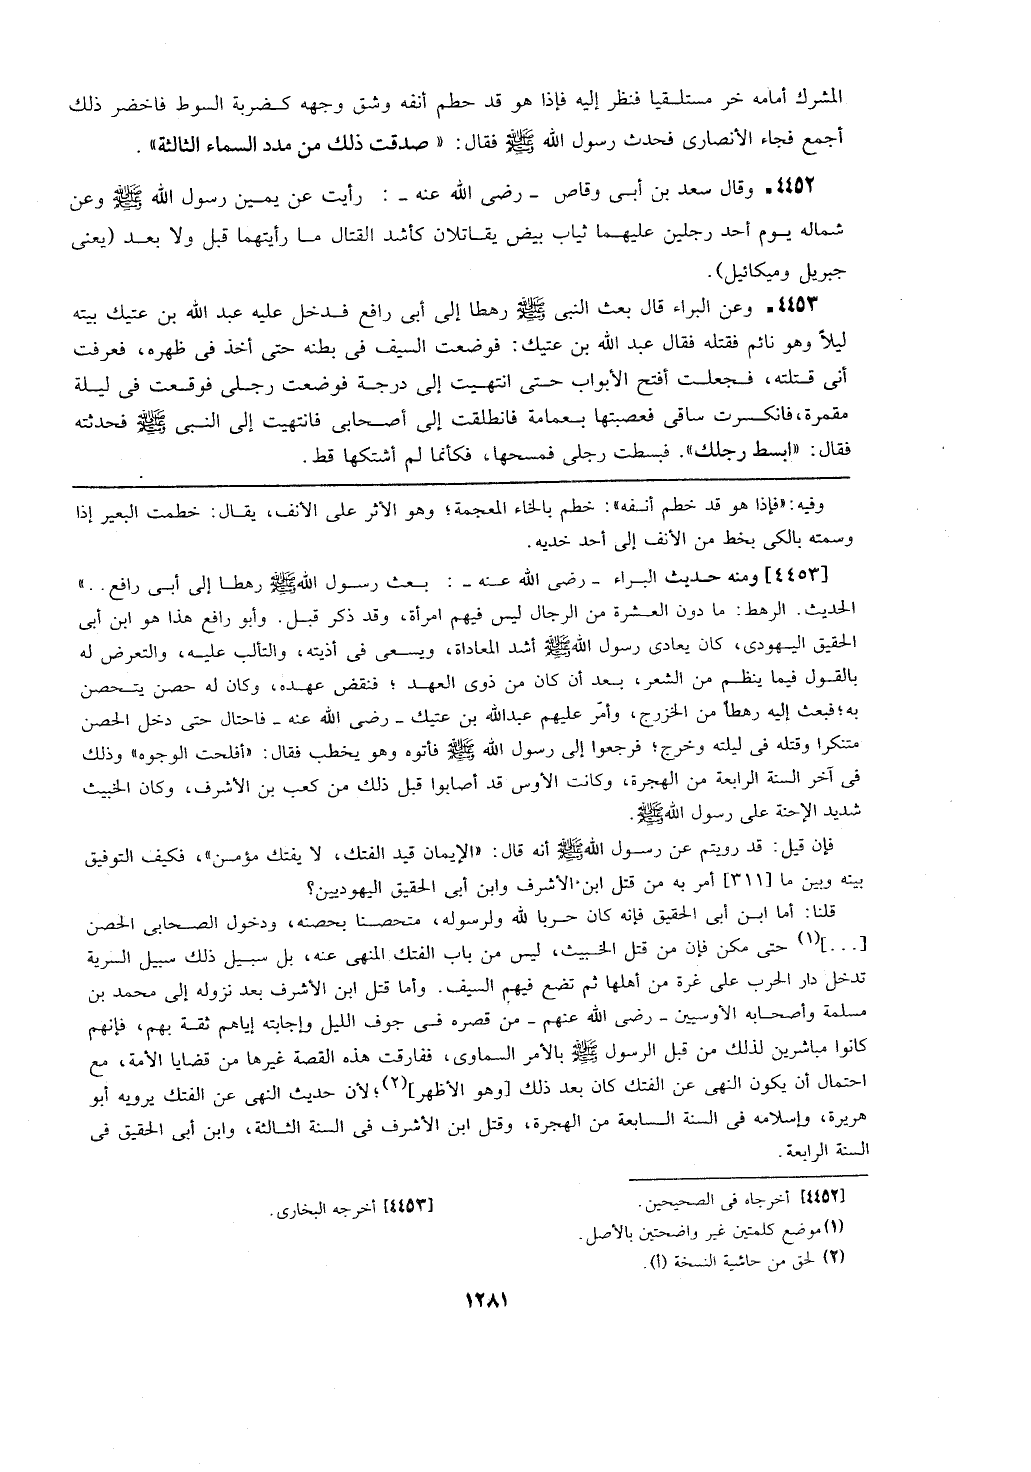 المشرك أمامه خر مستلقيا فنظر إليه فإذا هو قد حطم أنفه وشق وجهه كضربة السوط فاخضر ذلك
أجمع فجاء الأنصارى فحدث رسول الله ﷺ فقال: « صدقت ذلك من مدد السماء الثالثة» .
٤٤٥٢. وقال سعد بن أبى وقاص - رضى الله عنه - : رأيت عن يمين رسول الله ﷺ وعن
شماله يوم أحد رجلين عليهما ثياب بيض يقاتلان كأشد القتال ما رأيتهما قبل ولا بعد (يعنى
جبريل وميكائيل).
٤٤٥٣. وعن البراء قال بعث النبى ﷺ رهطا إلى أبى رافع فدخل عليه عبد الله بن عتيك بيته
ليلاً وهو نائم فقتله فقال عبد الله بن عتيك: فوضعت السيف فى بطنه حتى أخذ فى ظهره، فعرفت
أنى قتلته، فجعلت أفتح الأبواب حتى انتهيت إلى درجة فوضعت رجلى فوقعت فى ليلة
مقمرة، فانكسرت ساقى فعصبتها بعمامة فانطلقت إلى أصحابى فانتهيت إلى النبى ﷺ فحدثته
فقال: «ابسط رجلك». فبسطت رجلى فمسحها، فكأنما لم أشتكها قط.
وفيه: «فإذا هو قد خطم أنفه»: خطم بالخاء المعجمة؛ وهو الأثر على الأنف، يقال: خطمت البعير إذا
وسمته بالكى بخط من الأنف إلى أحد خديه.
[٤٤٥٣] ومنه حديث البراء - رضى الله عنه - : بعث رسول الله ﷺ رهطا إلى أبى رافع ..»
الحديث. الرهط: ما دون العشرة من الرجال ليس فيهم امرأة، وقد ذكر قبل. وأبو رافع هذا هو ابن أبى
الحقيق اليهودى، كان يعادى رسول الله ﷺ أشد المعاداة، ويسعى فى أذيته، والتألب عليه، والتعرض له
بالقول فيما ينظم من الشعر، بعد أن كان من ذوى العهد ؛ فنقض عهده، وكان له حصن يتحصن
به؛ فبعث إليه رهطاً من الخزرج، وأمّر عليهم عبدالله بن عتيك - رضى الله عنه - فاحتال حتى دخل الحصن
متنكرا وقتله فى ليلته وخرج؛ فرجعوا إلى رسول الله ﷺ فأتوه وهو يخطب فقال: «أفلحت الوجوه» وذلك
فى آخر السنة الرابعة من الهجرة، وكانت الأوس قد أصابوا قبل ذلك من كعب بن الأشرف، وكان الخبيث
شديد الإحنة على رسول الله ﷺ.
فإن قيل: قد رويتم عن رسول الله ﷺ أنه قال: «الإيمان قيد الفتك، لا يفتك مؤمن»، فكيف التوفيق
بينه وبين ما [٣١١] أمر به من قتل ابن الأشرف وابن أبى الحقيق اليهوديين؟
قلنا: أما ابن أبى الحقيق فإنه كان حربا لله ولرسوله، متحصنا بحصنه، ودخول الصحابى الحصن
[...](١) حتى مكن فإن من قتل الخبيث، ليس من باب الفتك المنهى عنه، بل سبيل ذلك سبيل السرية
تدخل دار الحرب على غرة من أهلها ثم تضع فيهم السيف. وأما قتل ابن الأشرف بعد نزوله إلى محمد بن
مسلمة وأصحابه الأوسيين - رضى الله عنهم - من قصره فى جوف الليل وإجابته إياهم ثقة بهم، فإنهم
كانوا مباشرين لذلك من قبل الرسول ﷺ بالأمر السماوى، ففارقت هذه القصة غيرها من قضايا الأمة، مع
احتمال أن يكون النهى عن الفتك كان بعد ذلك [وهو الأظهر](٢)؛ لأن حديث النهى عن الفتك يرويه أبو
هريرة، وإسلامه فى السنة السابعة من الهجرة، وقتل ابن الأشرف فى السنة الثالثة، وابن أبى الحقيق فى
السنة الرابعة.
[٤٤٥٢] أخرجاه فى الصحيحين. [٤٤٥٣] أخرجه البخارى.
(١) موضع كلمتين غير واضحتين بالأصل.
(٢) لحق من حاشية النسخة (أ).
١٢٨١